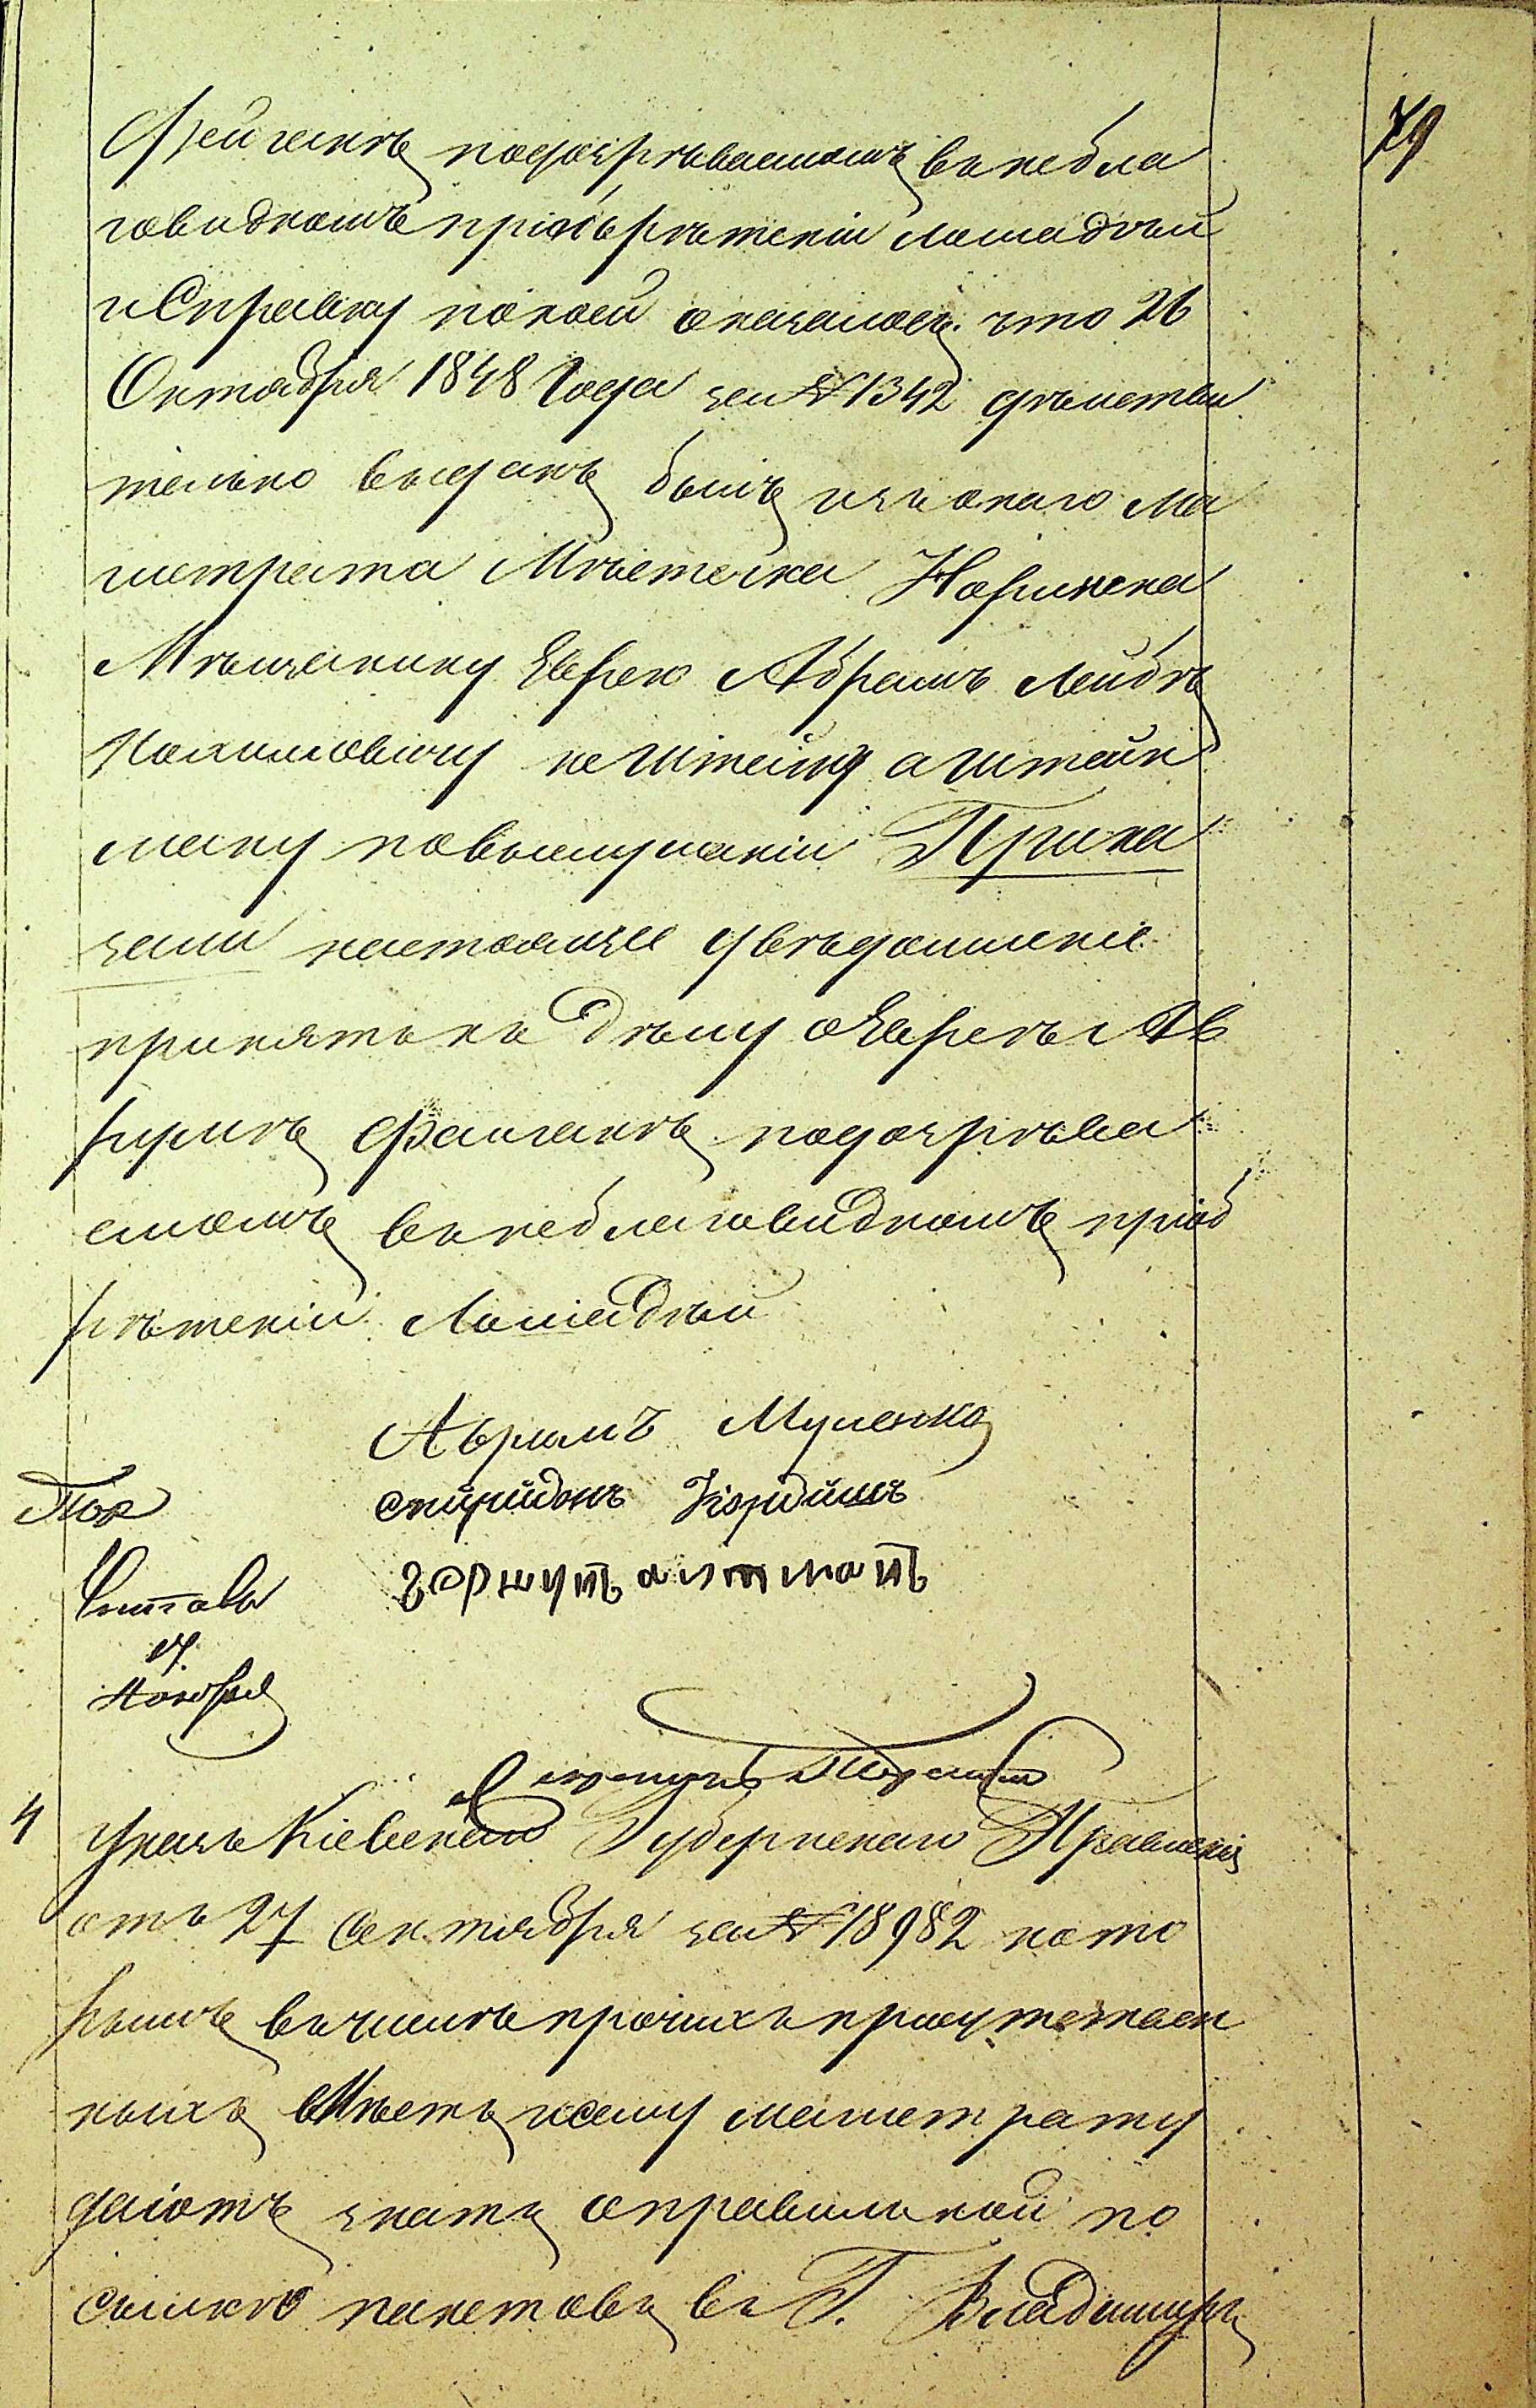 79
Фейганъ подозрѣваемомъ въ небла
говидномъ пріобрѣтеніи лошадѣй
и Справку по коей оказалось что 26
Октября 1848 Года за № 1342 дѣистви
тельно выданъ былъ изъ онаго Ма
гистрата Мѣстечка Норинска
Мѣщанину Еврею Абрамъ Лейбѣ
не Штейну а Штейн
ману повыслушаніи Прика
зали настоящее увѣдомленіе
принять къ дѣлу о Евреѣ Ав
румѣ Файганѣ подозрѣва
емомъ въ неблаговидномъ пріоб
рѣтеніи Лошадѣй
Аврамъ
Спиридонъ
4
Указъ Кіевскаго Губернскаго Правленія
отъ 27 Октября за № 18982 кото
рымъ въ числѣ прочихъ присутствен
ныхъ Мѣстъ и сему магистрату
даютъ знать о правильной по
сылкѣ пакетовъ въ Г. Владимиръ